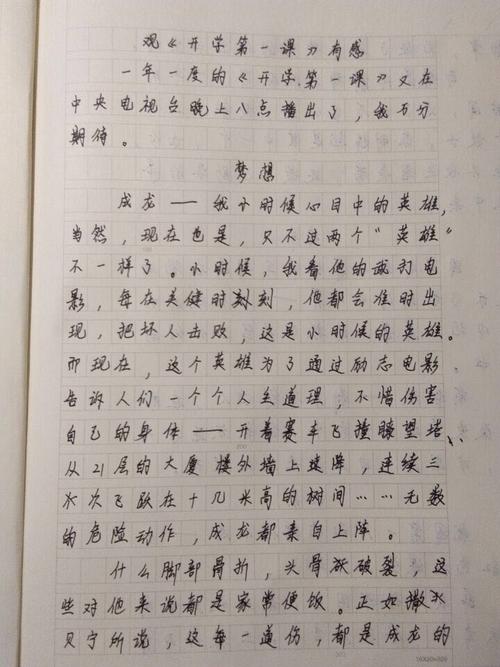 观《开学第一课》有感
一年一度的《开学第一课》又在
中央电视台晚上八点播出了，我万分
期待。
梦想
成龙——我小时候心目中的英雄，
当然，现在也是，只不过两个“英雄”
不一样了。小时候，我看他的武打电
影，每在关健时刻刻，他都会准时出
现，把坏人击败，这是小时候的英雄。
而现在，这个英雄为了通过励志电影
告诉人们一个个人生道理，不惜伤害
自己的身体——开着赛车飞撞瞭望塔、
从21层的大厦楼外墙上速降，连续三
次飞跃在十几米高的树间……无数
的危险动作，成龙都亲自上阵。
什么脚部骨折，头骨破裂，这
些对他来说都是家常便饭。正如撒
贝宁所说，这每一道伤，都是成龙的
16X20=320